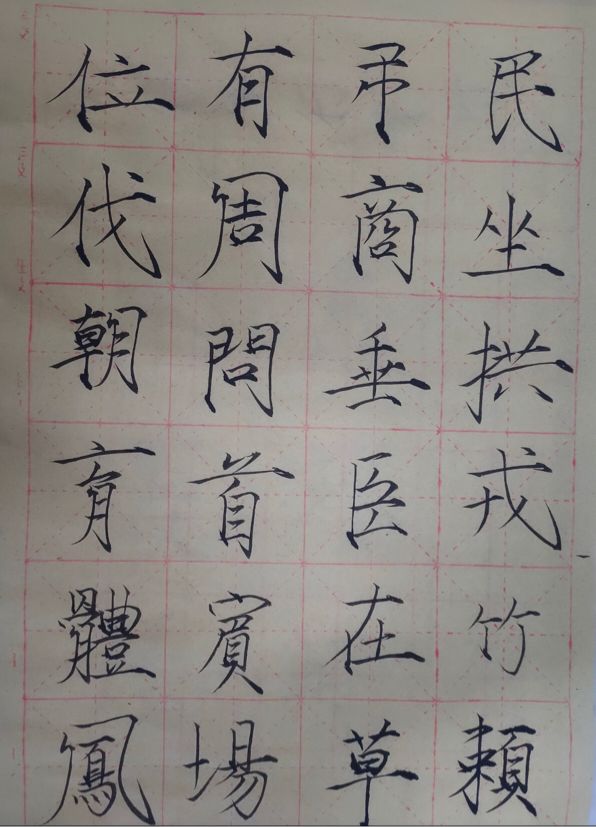 位有弔民
伐周商坐
朝問垂拱
育首臣戎
體賓在竹
鳳場草賴